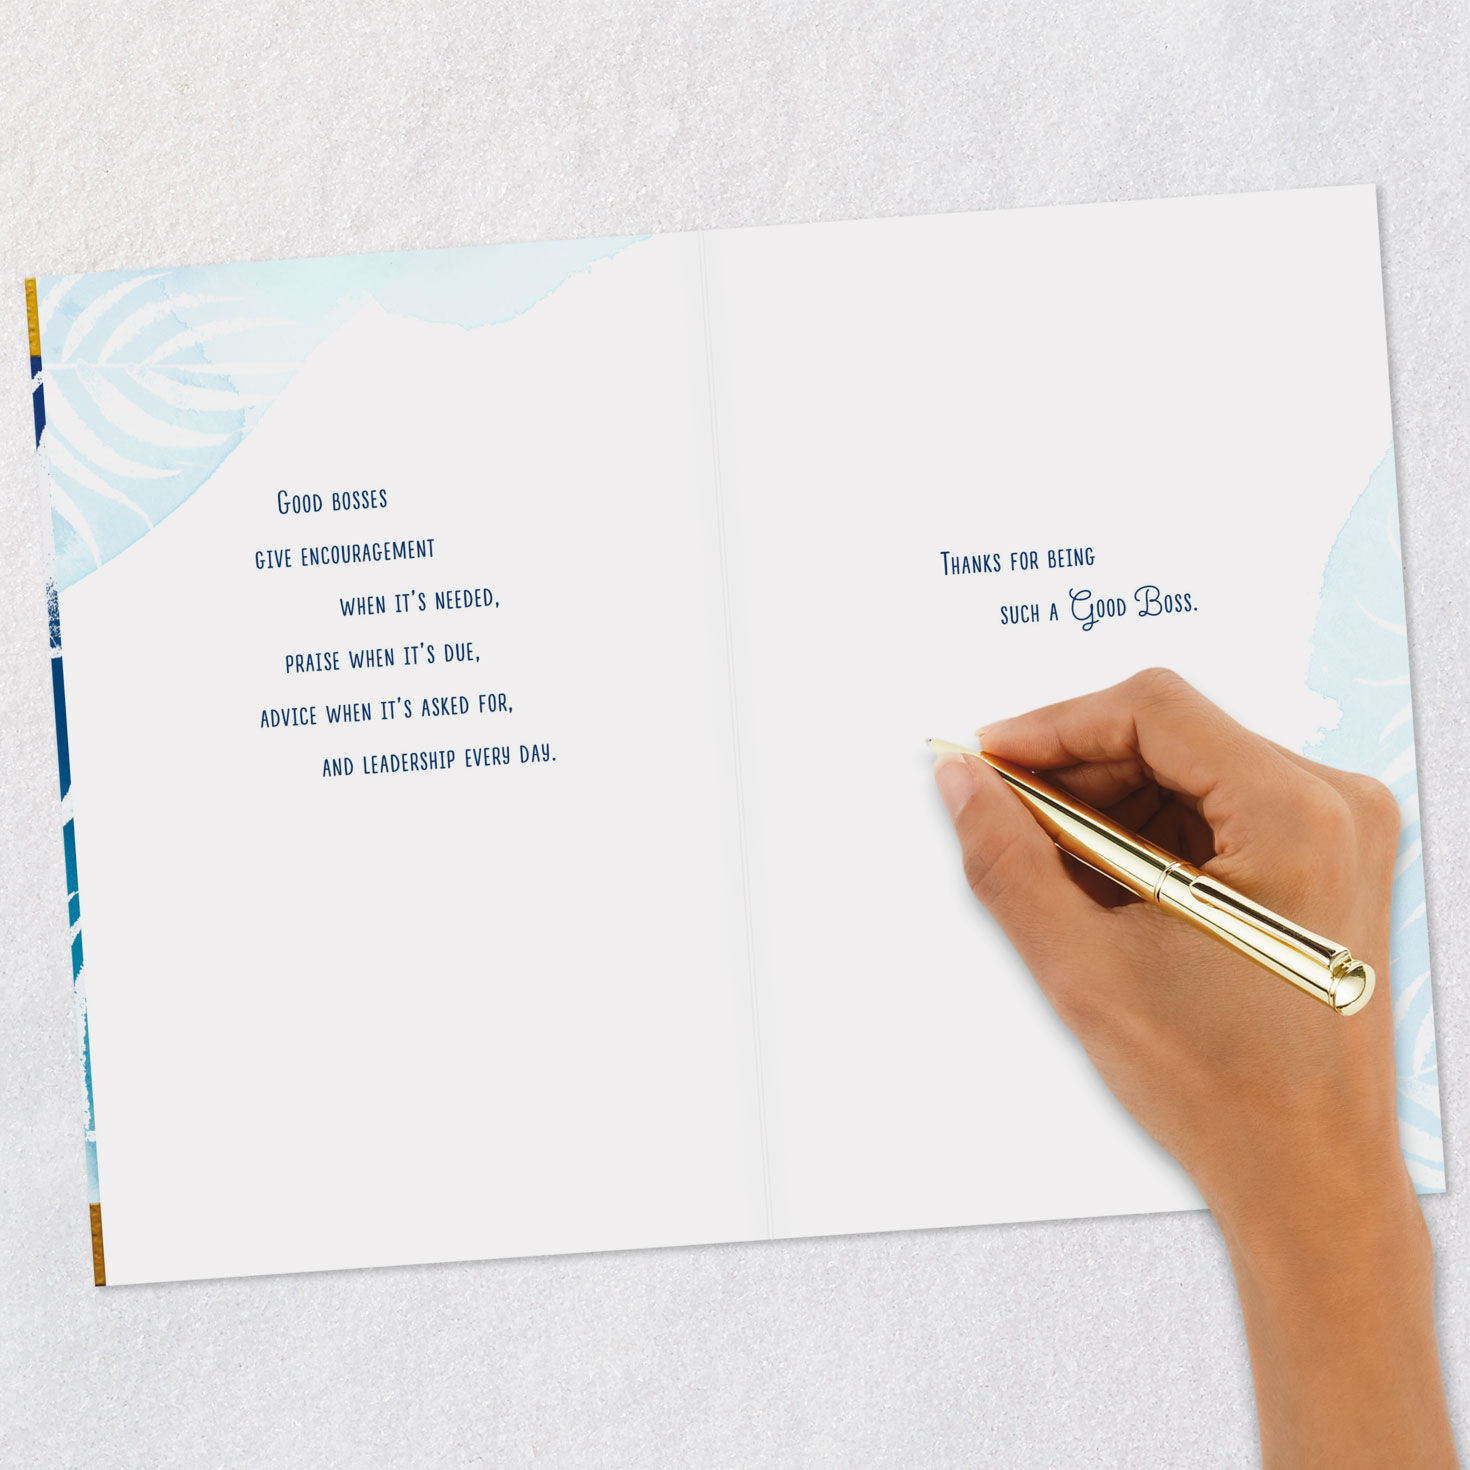 Good bosses
give encouragement
when it's needed,
praise when it's due,
advice when it's asked for,
and leadership every day.
Thanks for being
such a Good Boss.